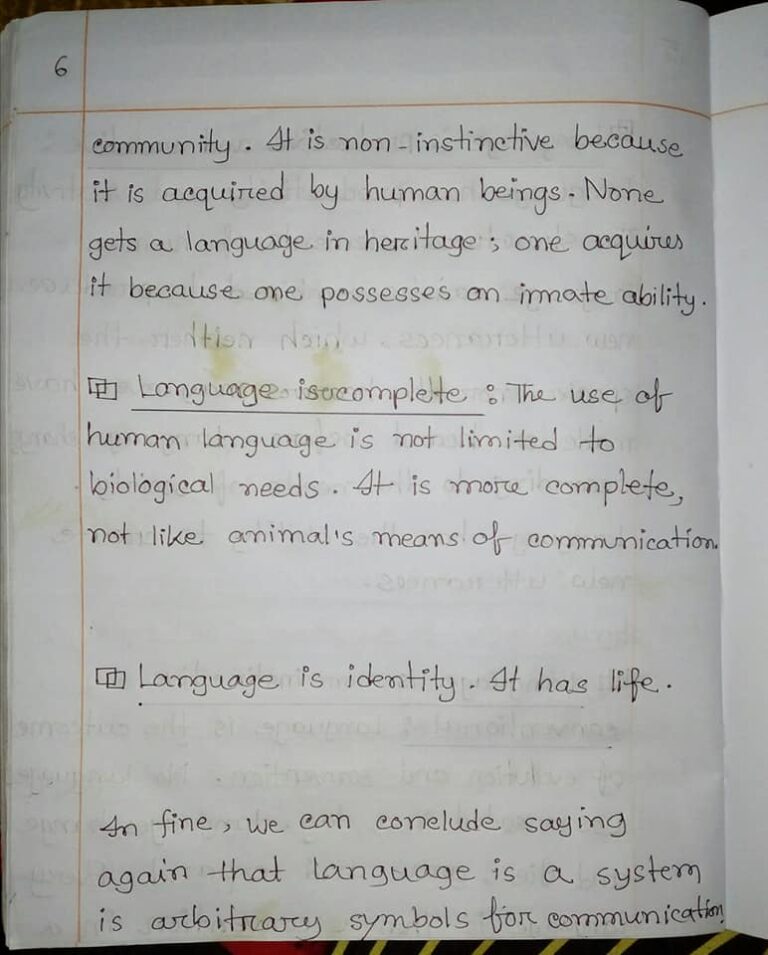 6
community. It is non-instinctive because
it is acquired by human beings. None
gets a language in heritage; one acquires
it because one possesses an innate ability.
Language is complete : The use of
human language is not limited to
biological needs. It is more complete,
not like animal's means of communication.
Language is identity. It has life.
In fine, we can conclude saying
again that language is a system
is arbitrary symbols for communication